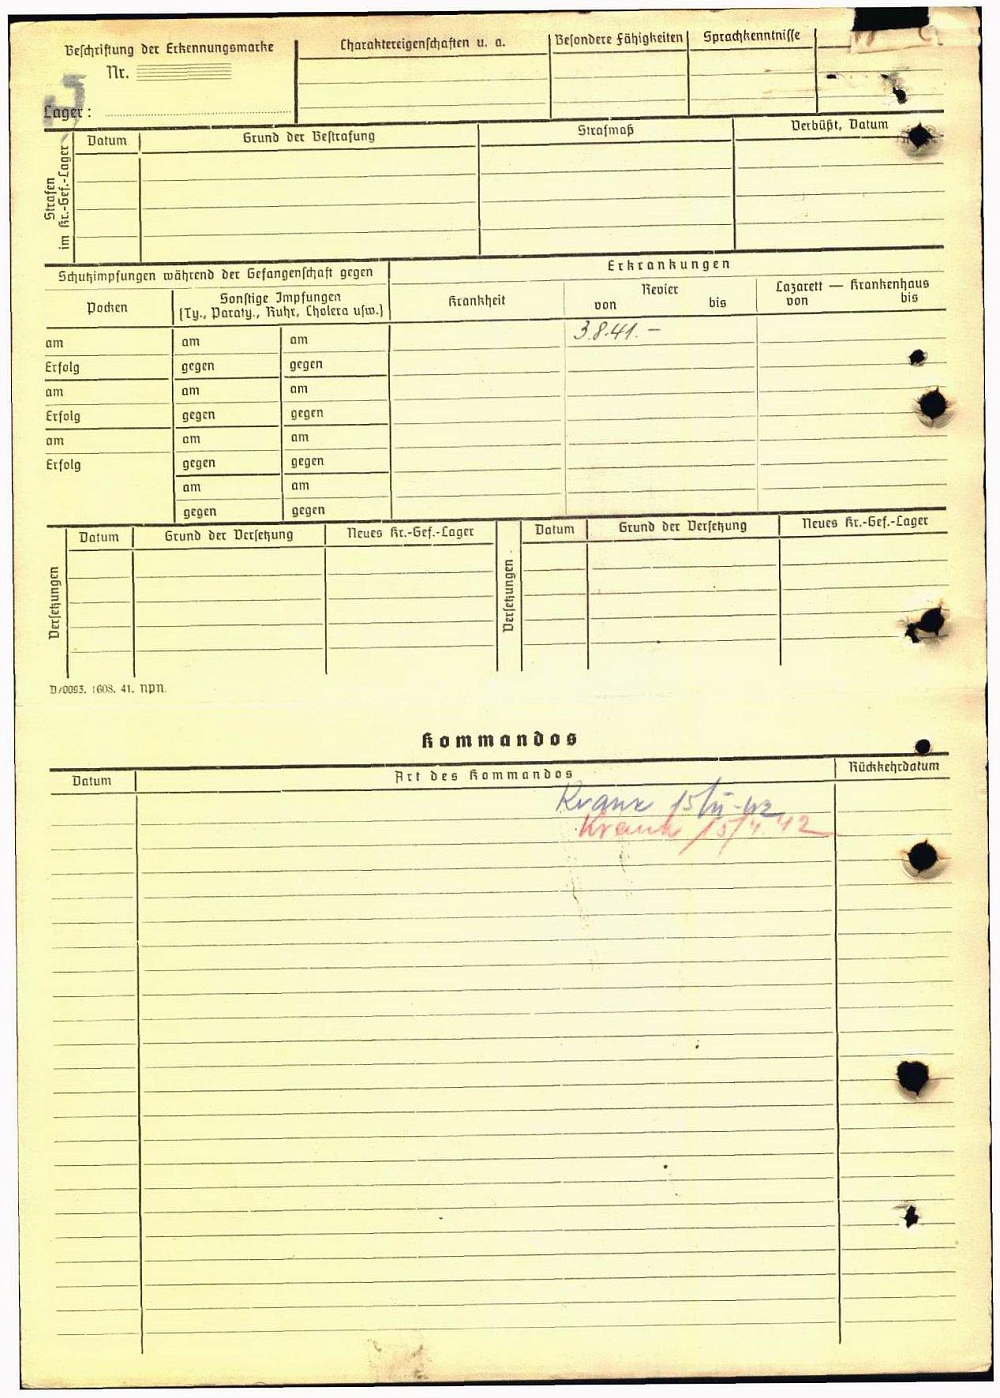 Beschriftung der Erkennungsmarke
Nr.
Lager:
Charaktereigenschaften u. a.
Besondere Fähigkeiten
Sprachkenntnisse
Strafen im Kr.-Gef.-Lager
Datum
Grund der Bestrafung
Strafmaß
Verbüßt, Datum
Schutzimpfungen während der Gefangenschaft gegen
Erkrankungen
Pocken
Sonstige Impfungen
(Ty., Paraty., Ruhr, Cholera usw.)
Krankheit
Revier
von bis
Lazarett — Krankenhaus
von bis
am am am 3.8.41. –
Erfolg gegen gegen
am am am
Erfolg gegen gegen
am am am
Erfolg gegen gegen
am am
gegen gegen
Versetzungen
Datum Grund der Versetzung Neues Kr.-Gef.-Lager
Versetzungen
Datum Grund der Versetzung Neues Kr.-Gef.-Lager
D/0093. 1608. 41. NPN.
Kommandos
Datum Art des Kommandos Rückkehrdatum
Krank 15/II-42
Krank 15/4.42